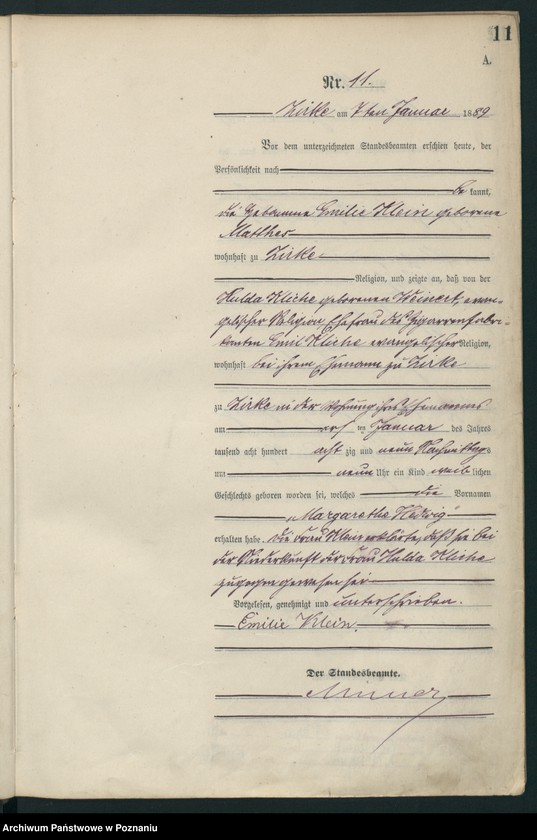 11
A.
Nr. 11.
Zirke am 7ten Januar 1889
Vor dem unterzeichneten Standesbeamten erschien heute, der
Persönlichkeit nach
bekannt,
die Hebamme Emilie Klein geborene
Matthes
wohnhaft zu Zirke
Religion, und zeigte an, daß von der
Hulda Kliche geborenen Weinert, evan-
gelischer Religion Ehefrau des Cigarrenfabri-
kanten Emil Kliche evangelischer Religion,
wohnhaft bei ihrem Ehemann zu Zirke
zu Zirke in der Wohnung ihres Ehemannes
am ten Januar des Jahres
tausend acht hundert achtzig und neun Nachmittags
um neun Uhr ein Kind weiblichen
Geschlechts geboren worden sei, welches die Vornamen
„Margarethe Hedwig“
erhalten habe. Die Frau Klein erklärte, daß sie bei
der Niederkunft der Frau Hulda Kliche
zugegen gewesen sei
Vorgelesen, genehmigt und unterschrieben.
Emilie Klein.
Der Standesbeamte.
Archiwum Państwowe w Poznaniu